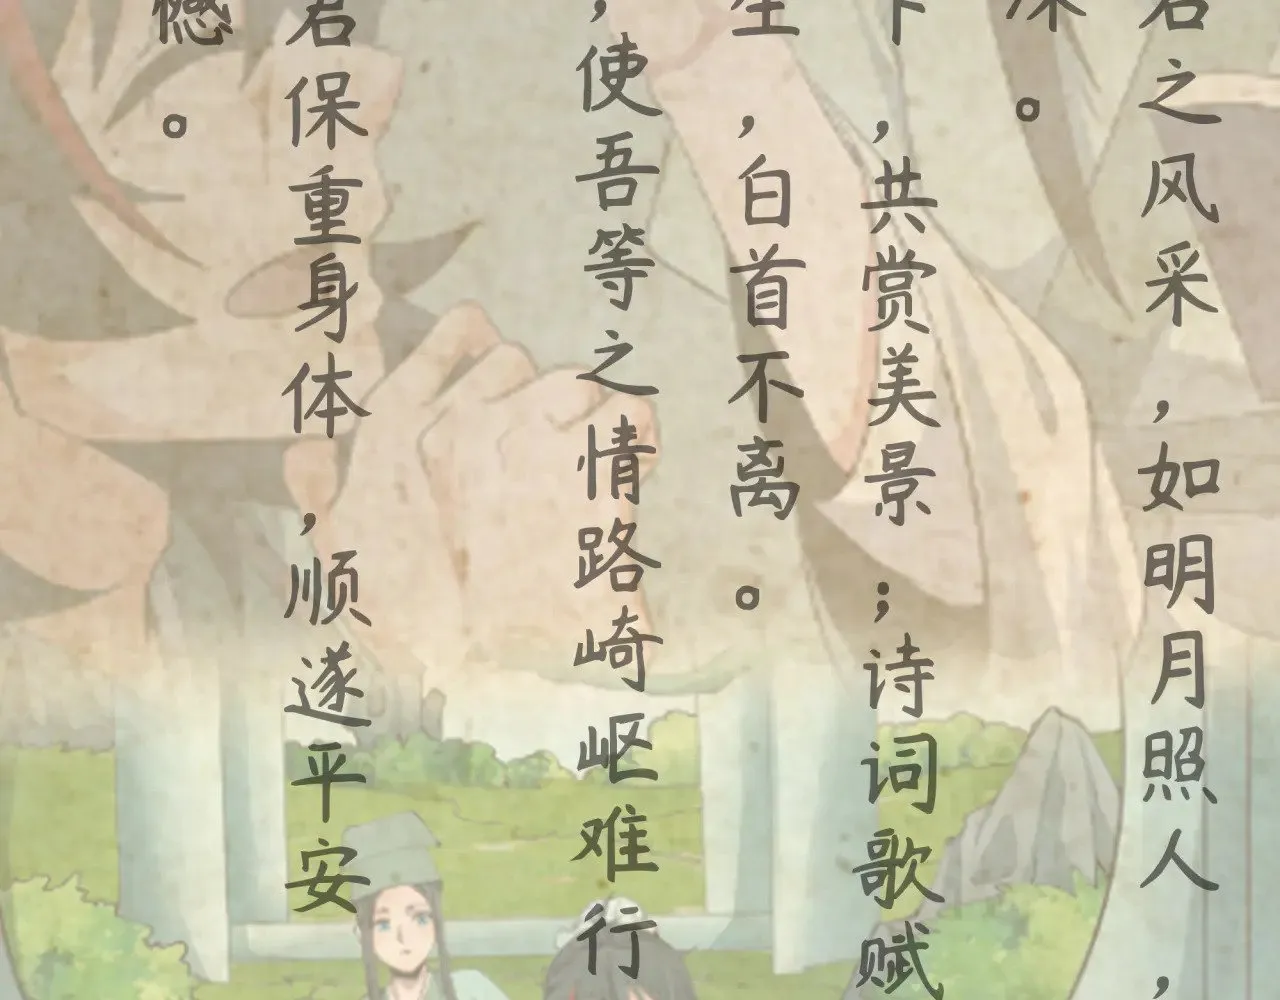 君之风采，如明月照人，
深。
下，共赏美景；诗词歌赋
生，白首不离。
，使吾等之情路崎岖难行
君保重身体，顺遂平安
憾。